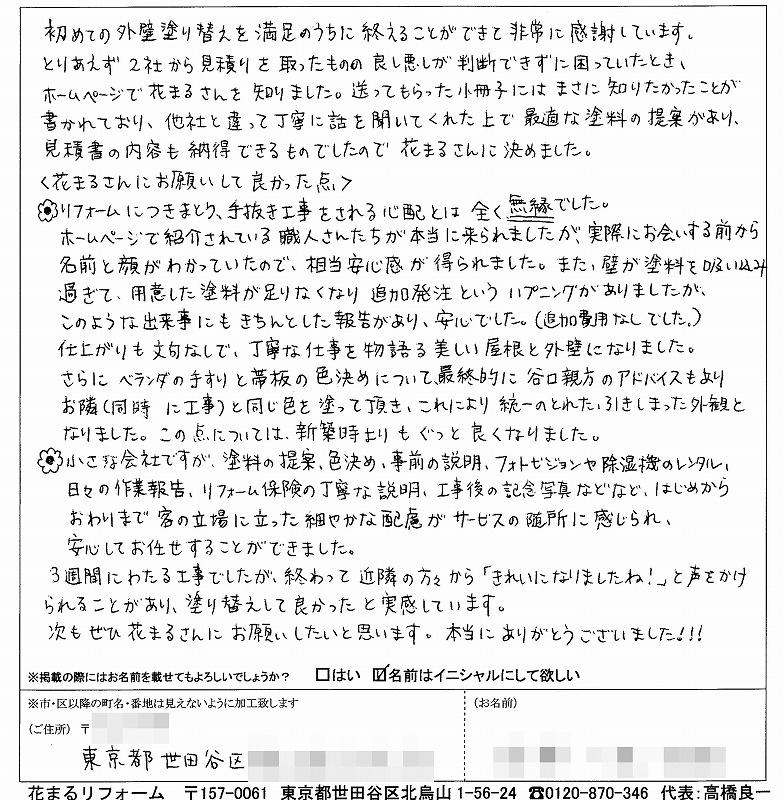 初めての外壁塗り替えを満足のうちに終えることができて非常に感謝しています。
とりあえず2社から見積りを取ったものの良し悪しが判断できずに困っていたとき、
ホームページで花まるさんを知りました。送ってもらった小冊子にはまさに知りたかったことが
書かれており、他社と違って丁寧に話を聞いてくれた上で最適な塗料の提案があり、
見積書の内容も納得できるものでしたので花まるさんに決めました。
<花まるさんにお願いして良かった点>
リフォームにつきまとう、手抜き工事をされる心配とは全く無縁でした。
ホームページで紹介されている職人さんたちが本当に来られましたが、実際にお会いする前から
名前と顔がわかっていたので、相当安心感が得られました。また、壁が塗料を吸い込み
過ぎて、用意した塗料が足りなくなり追加発注というハプニングがありましたが、
このような出来事にもきちんとした報告があり、安心でした。(追加費用なしでした。)
仕上がりも文句なしで、丁寧な仕事を物語る美しい屋根と外壁になりました。
さらにベランダの手すりと帯板の色決めについて、最終的に谷口親方のアドバイスもあり
お隣(同時に工事)と同じ色を塗って頂き、これにより統一のとれた引きしまった外観と
なりました。この点については、新築時よりもぐっと良くなりました。
小さな会社ですが、塗料の提案、色決め、事前の説明、フォトビジョンや除湿機のレンタル、
日々の作業報告、リフォーム保険の丁寧な説明、工事後の記念写真などなど、はじめから
おわりまで客の立場に立った細やかな配慮がサービスの随所に感じられ、
安心してお任せすることができました。
3週間にわたる工事でしたが、終わって近隣の方々から「きれいになりましたね!」と声をかけ
られることがあり、塗り替えして良かったと実感しています。
次もぜひ花まるさんにお願いしたいと思います。本当にありがとうございました!!!
※掲載の際にはお名前を載せてもよろしいでしょうか? □はい ☑名前はイニシャルにして欲しい
※市・区以降の町名・番地は見えないように加工致します
(お名前)
(ご住所) 〒
東京都世田谷区
花まるリフォーム 〒157-0061 東京都世田谷区北烏山1-56-24 ☎0120-870-346 代表:高橋良一